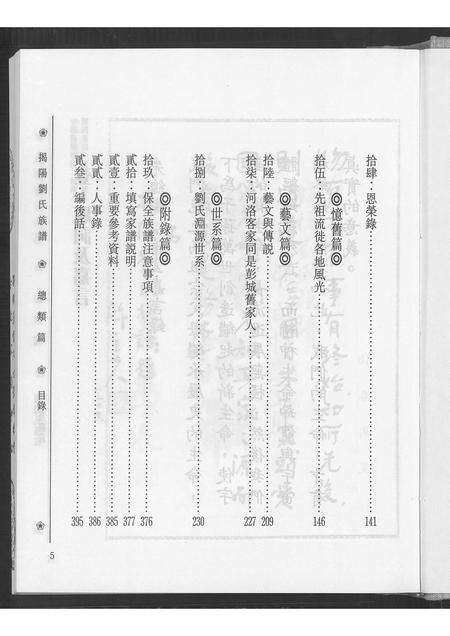 拾肆：恩榮錄……141
◎憶舊篇◎
拾伍：先祖流徙各地風光……146
◎藝文篇◎
拾陸：藝文與傳說……209
拾柒：河洛客家同是彭城舊家人……227
◎世系篇◎
拾捌：劉氏淵源世系……230
◎附錄篇◎
拾玖：保全族譜注意事項……376
貳拾：填寫家譜説明……377
貳壹：重要參考資料……385
貳貳：人事錄……386
貳叁：編後話……395
揭陽劉氏族譜 總類篇 目錄
5